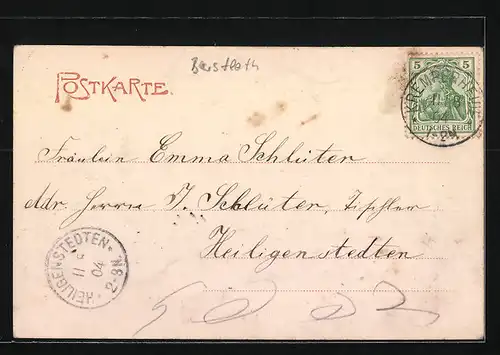 Beistleth
POSTKARTE.
5 5
DEUTSCHES REICH
1-2N
Fräulein Emma Schlüter
Adr. Herrn J. Schlüter, Tischler
Heiligenstedten
HEILIGENSTEDTEN
11
04
2-3N.